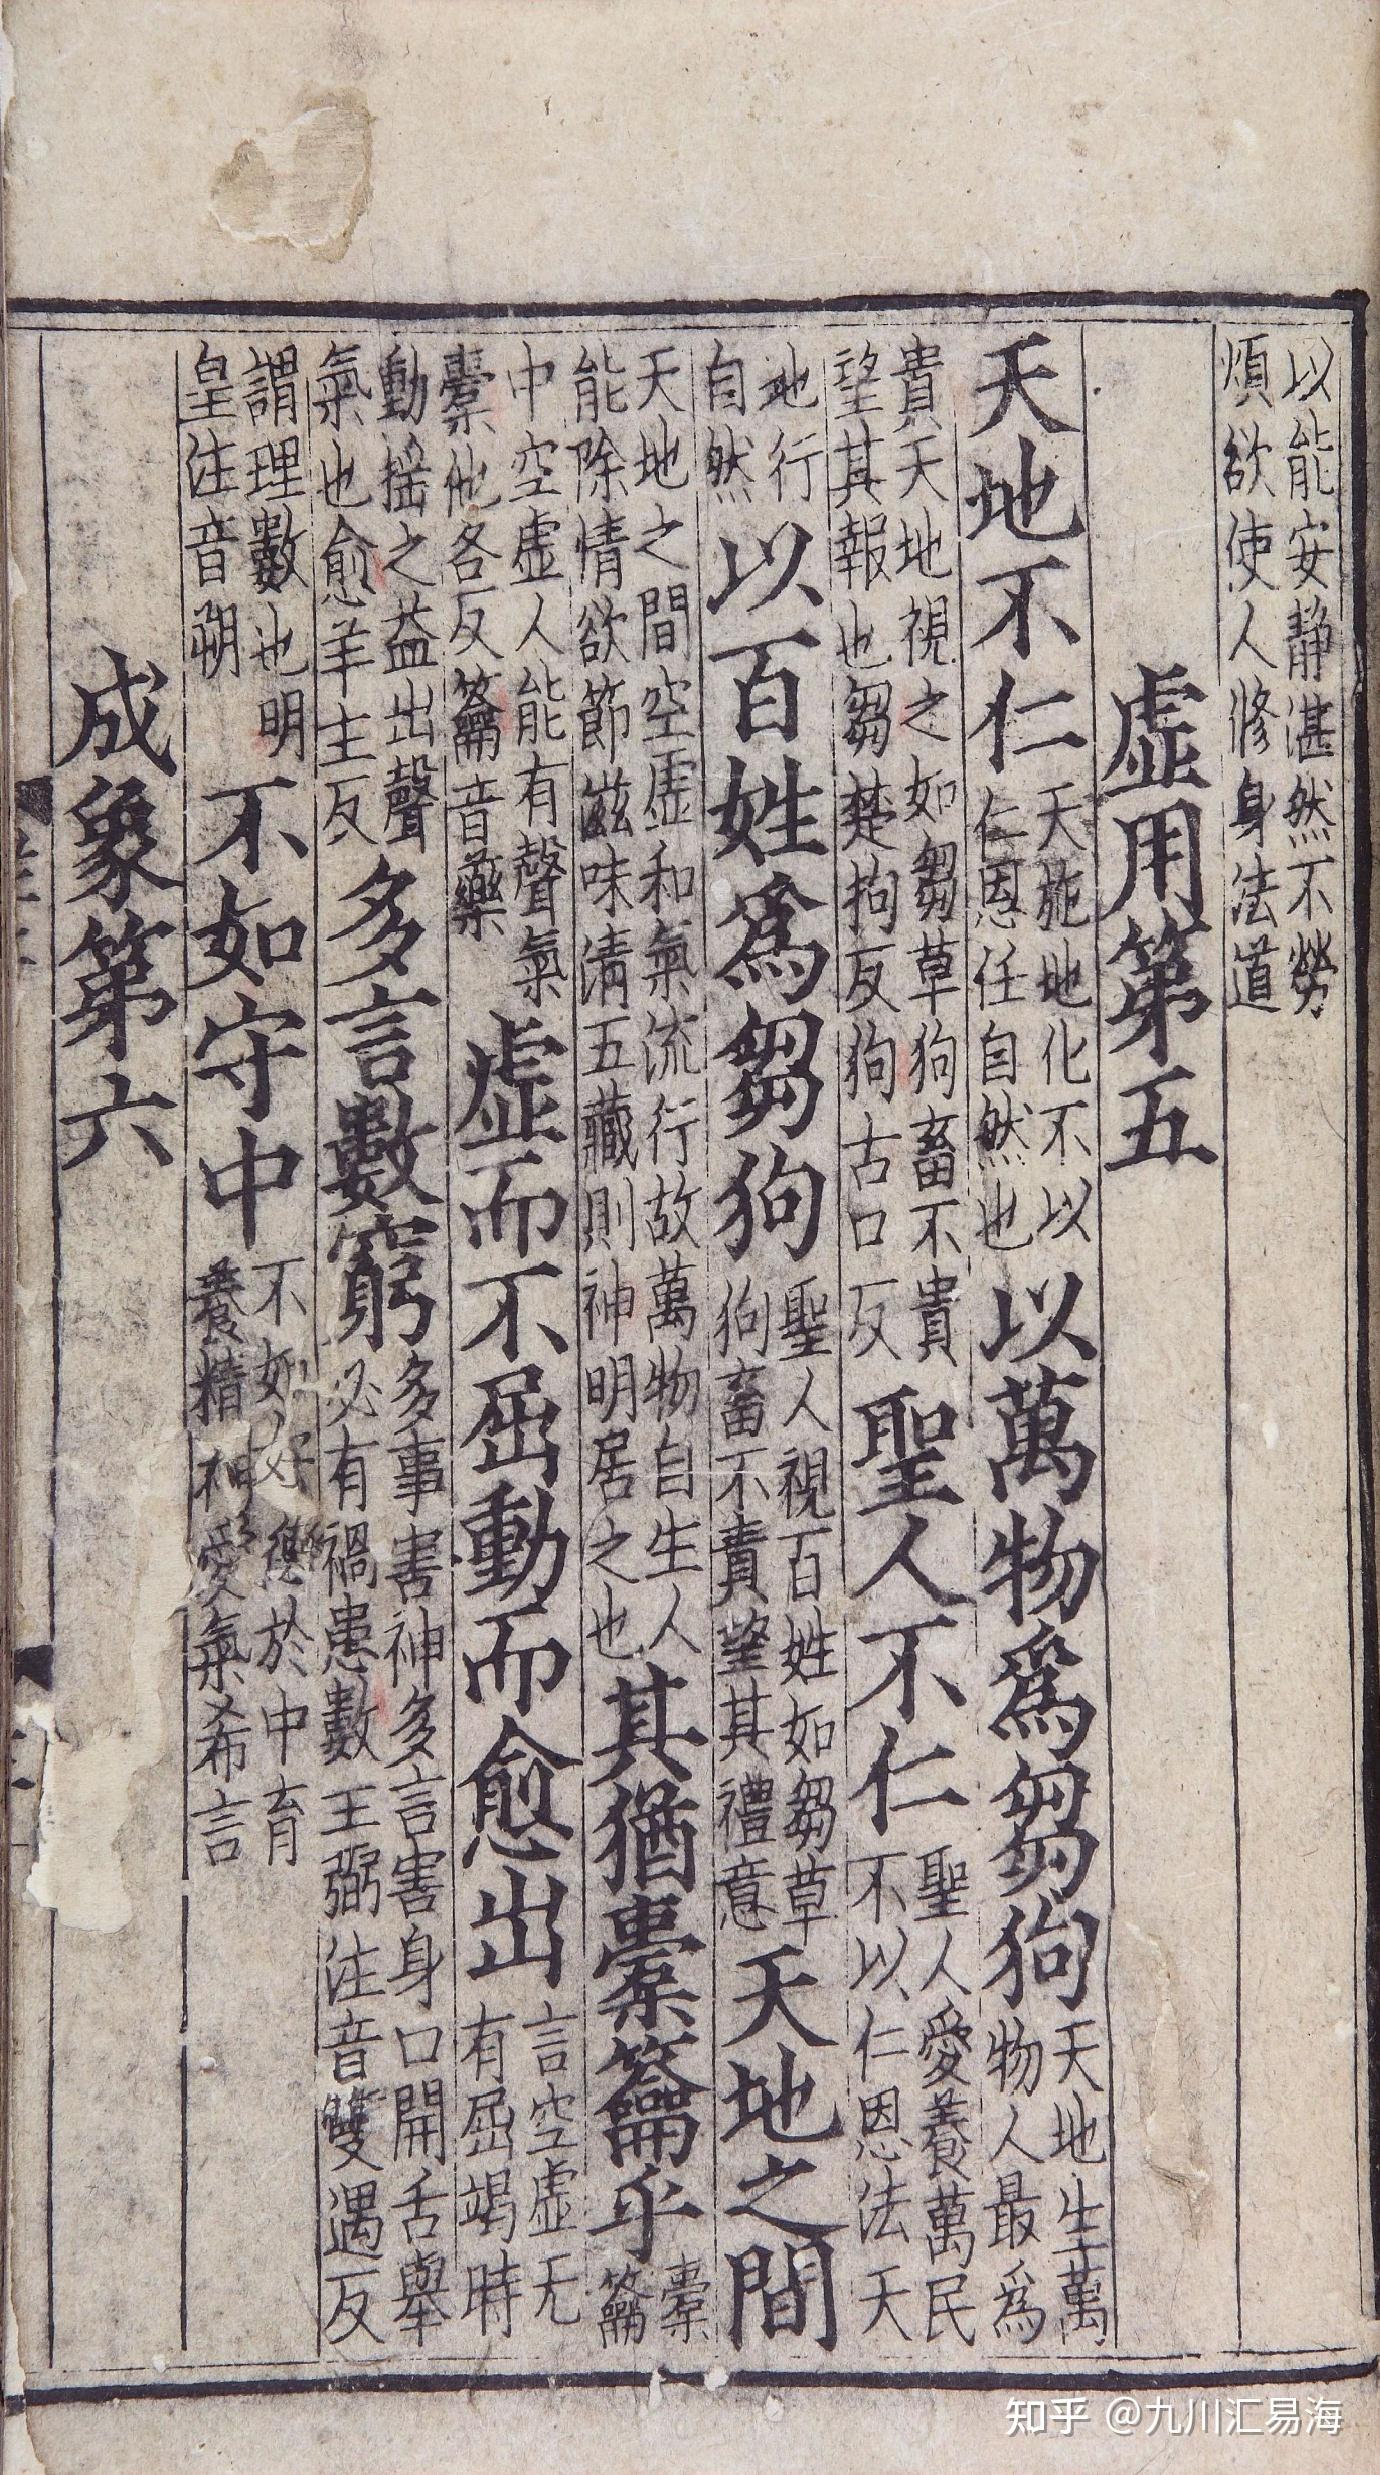 以能安靜湛然不勞煩欲使人修身法道
虛用第五
天地不仁天施地化不以仁恩任自然也以萬物爲芻狗天地生萬物人最爲
貴天地視之如芻草狗畜不貴望其報也芻楚拘反狗古口反聖人不仁聖人愛養萬民不以仁恩法天
地行自然以百姓爲芻狗聖人視百姓如芻草狗畜不責望其禮意天地之間
天地之間空虛和氣流行故萬物自生人能除情欲節滋味清五藏則神明居之也其猶橐籥乎橐籥
中空虛人能有聲氣橐他各反籥音藥虛而不屈動而愈出言空虛无有屈竭時
動搖之益出聲氣也愈羊主反多言數窮多事害神多言害身口開舌舉必有禍患數王弼注音雙遇反
謂理數也明皇注音朔不如守中不如於中育養精神愛氣希言
成象第六
知乎 @九川汇易海